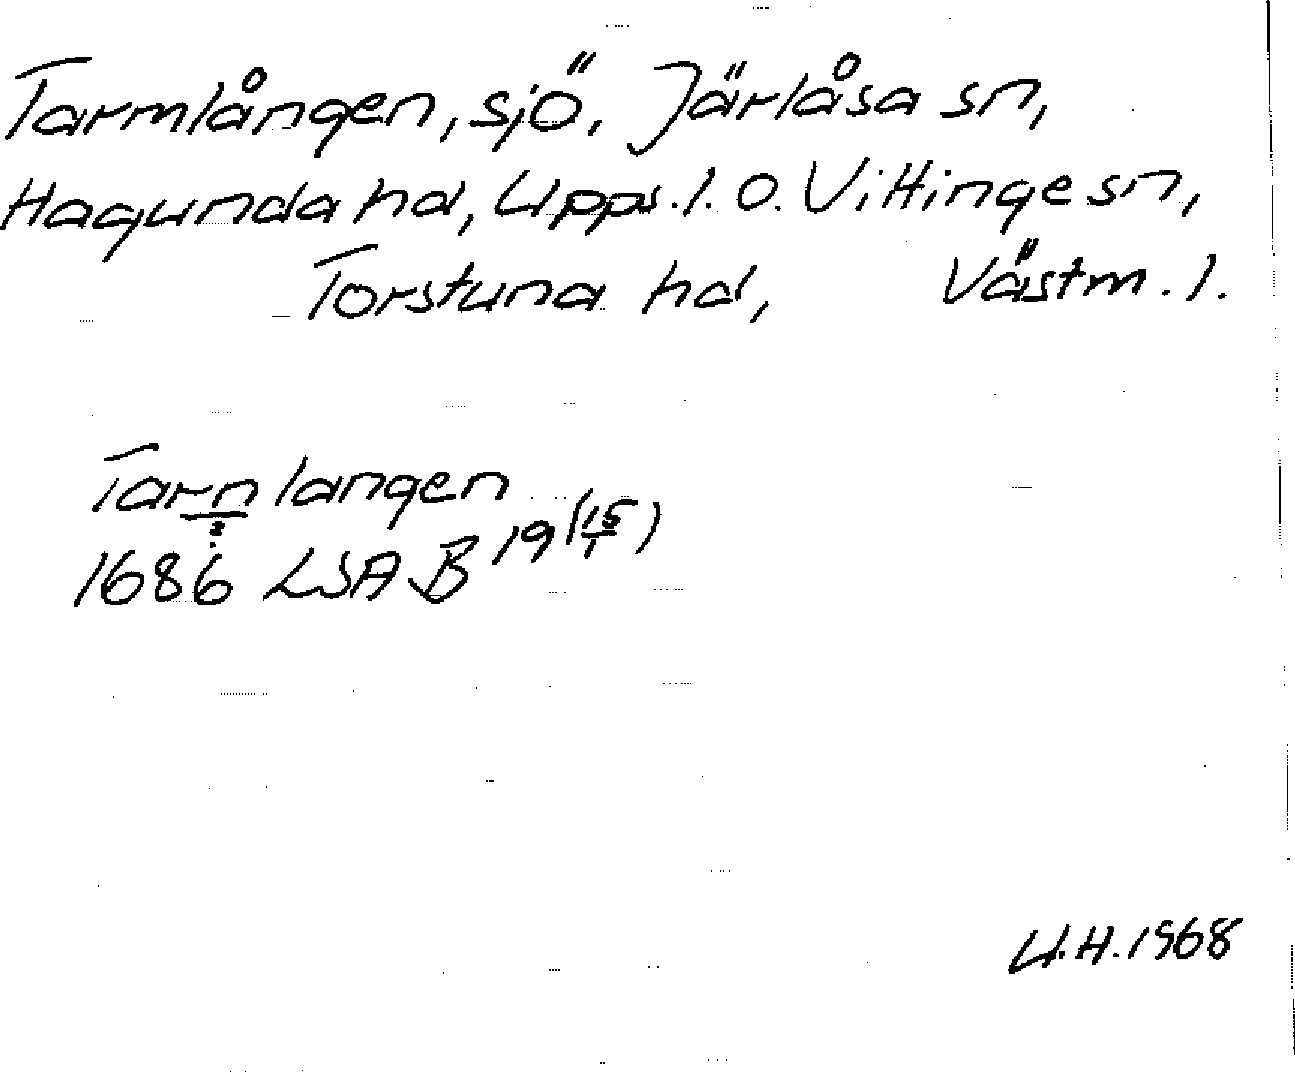 Tarmlången, sjö, Järlåsa sn,
Hagunda hd, Upps. l. O. Vittinge sn,
Torstuna hd, Västm. l.
Tarnlangen
?
1686 LSA B 19 (15/1)
U.H. 1968